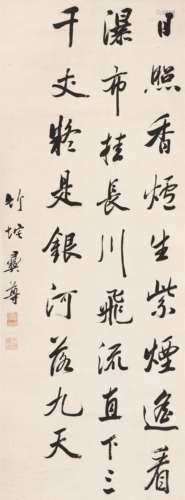 日照香爐生紫煙遙看
瀑布挂長川飛流直下三
千丈疑是銀河落九天
竹垞彝尊